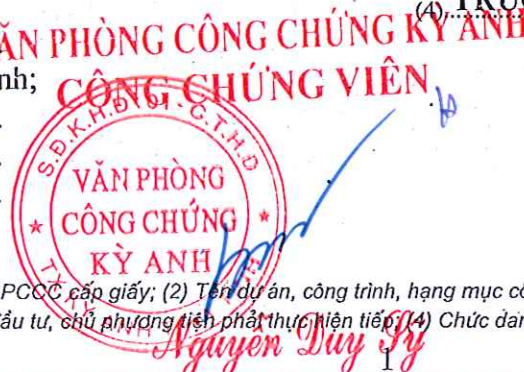 (4)
VĂN PHÒNG CÔNG CHỨNG KỲ ANH
CÔNG CHỨNG VIÊN
S.Đ.K.H.Đ: 01 - C.T.H.D
VĂN PHÒNG
CÔNG CHỨNG
KỲ ANH
PCCC cấp giấy; (2) Tên dự án, công trình, hạng mục
đầu tư, chủ phương tiện phải thực hiện tiếp; (4) Chức
Nguyễn Duy Sỹ
1